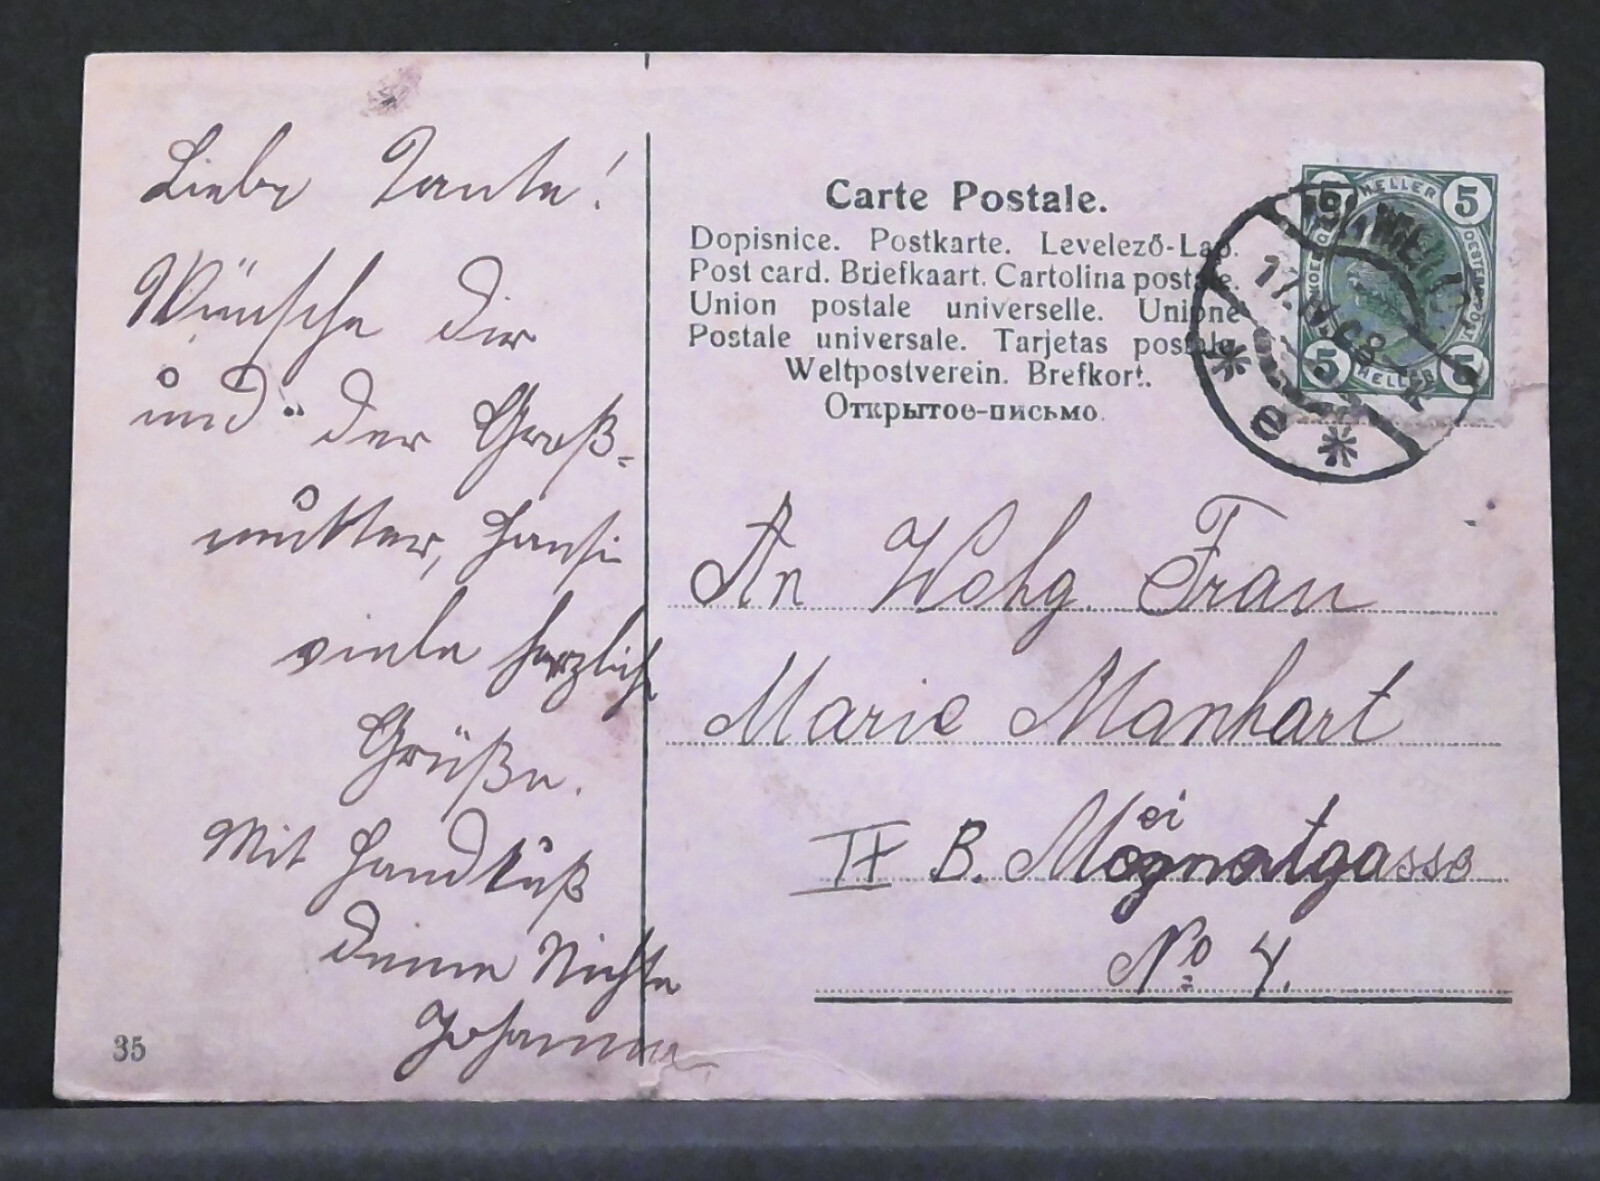 Liebe Tante!
Wünsche dir
und der Groß-
mutter, Hansi
viele herzliche
Grüße.
Mit Handkuß
deine Nichte
Johanna
35
Carte Postale.
Dopisnice. Postkarte. Levelező-Lap.
Post card. Briefkaart. Cartolina postale.
Union postale universelle. Unione
Postale universale. Tarjetas postale.
Weltpostverein. Brefkort.
Открытое-письмо.
5 HELLER 5
5 HELLER 5
17. IV 08
e
An Wohg. Frau
Marie Manhart
B.
No 4.